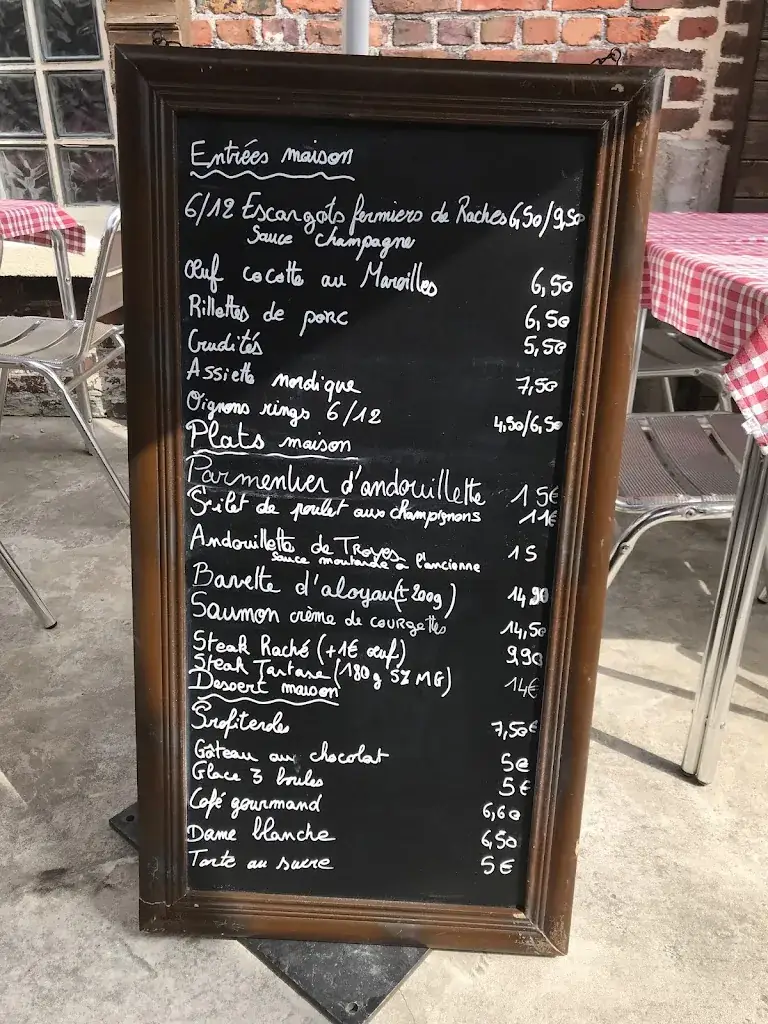 Entrées maison
6/12 Escargots fermiers de Raches 6,50/9,50
Sauce champagne
Œuf cocotte au Maroilles 6,50
Rillettes de porc 6,50
Crudités 5,50
Assiette nordique 7,50
Oignons rings 6/12 4,50/6,50
Plats maison
Parmentier d'andouillette 15€
Filet de poulet aux champignons 11€
Andouillette de Troyes 15
sauce moutarde à l'ancienne
Bavette d'aloyau (±200g) 14,90
Saumon crème de courgettes 14,50
Steak Haché (+1€ œuf) 9,90
Steak Tartare (180g 5% MG) 14€
Dessert maison
Profiterole 7,50€
Gâteau au chocolat 5€
Glace 3 boules 5€
Café gourmand 6,60
Dame blanche 6,50
Tarte au sucre 5€